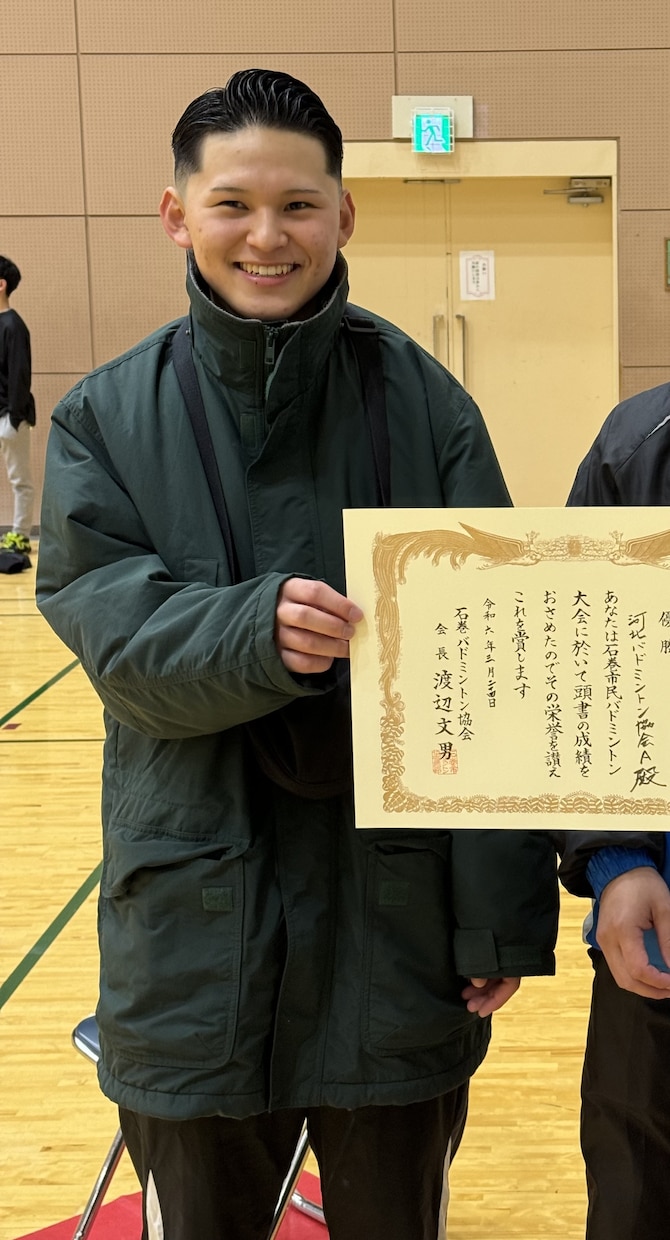 優勝
河北バドミントン協会A
殿
あなたは石巻市民バドミントン
大会に於いて頭書の成績を
おさめたのでその栄誉を讃え
これを賞します
令和六年三月二四日
石巻バドミントン協会
会長 渡辺文男